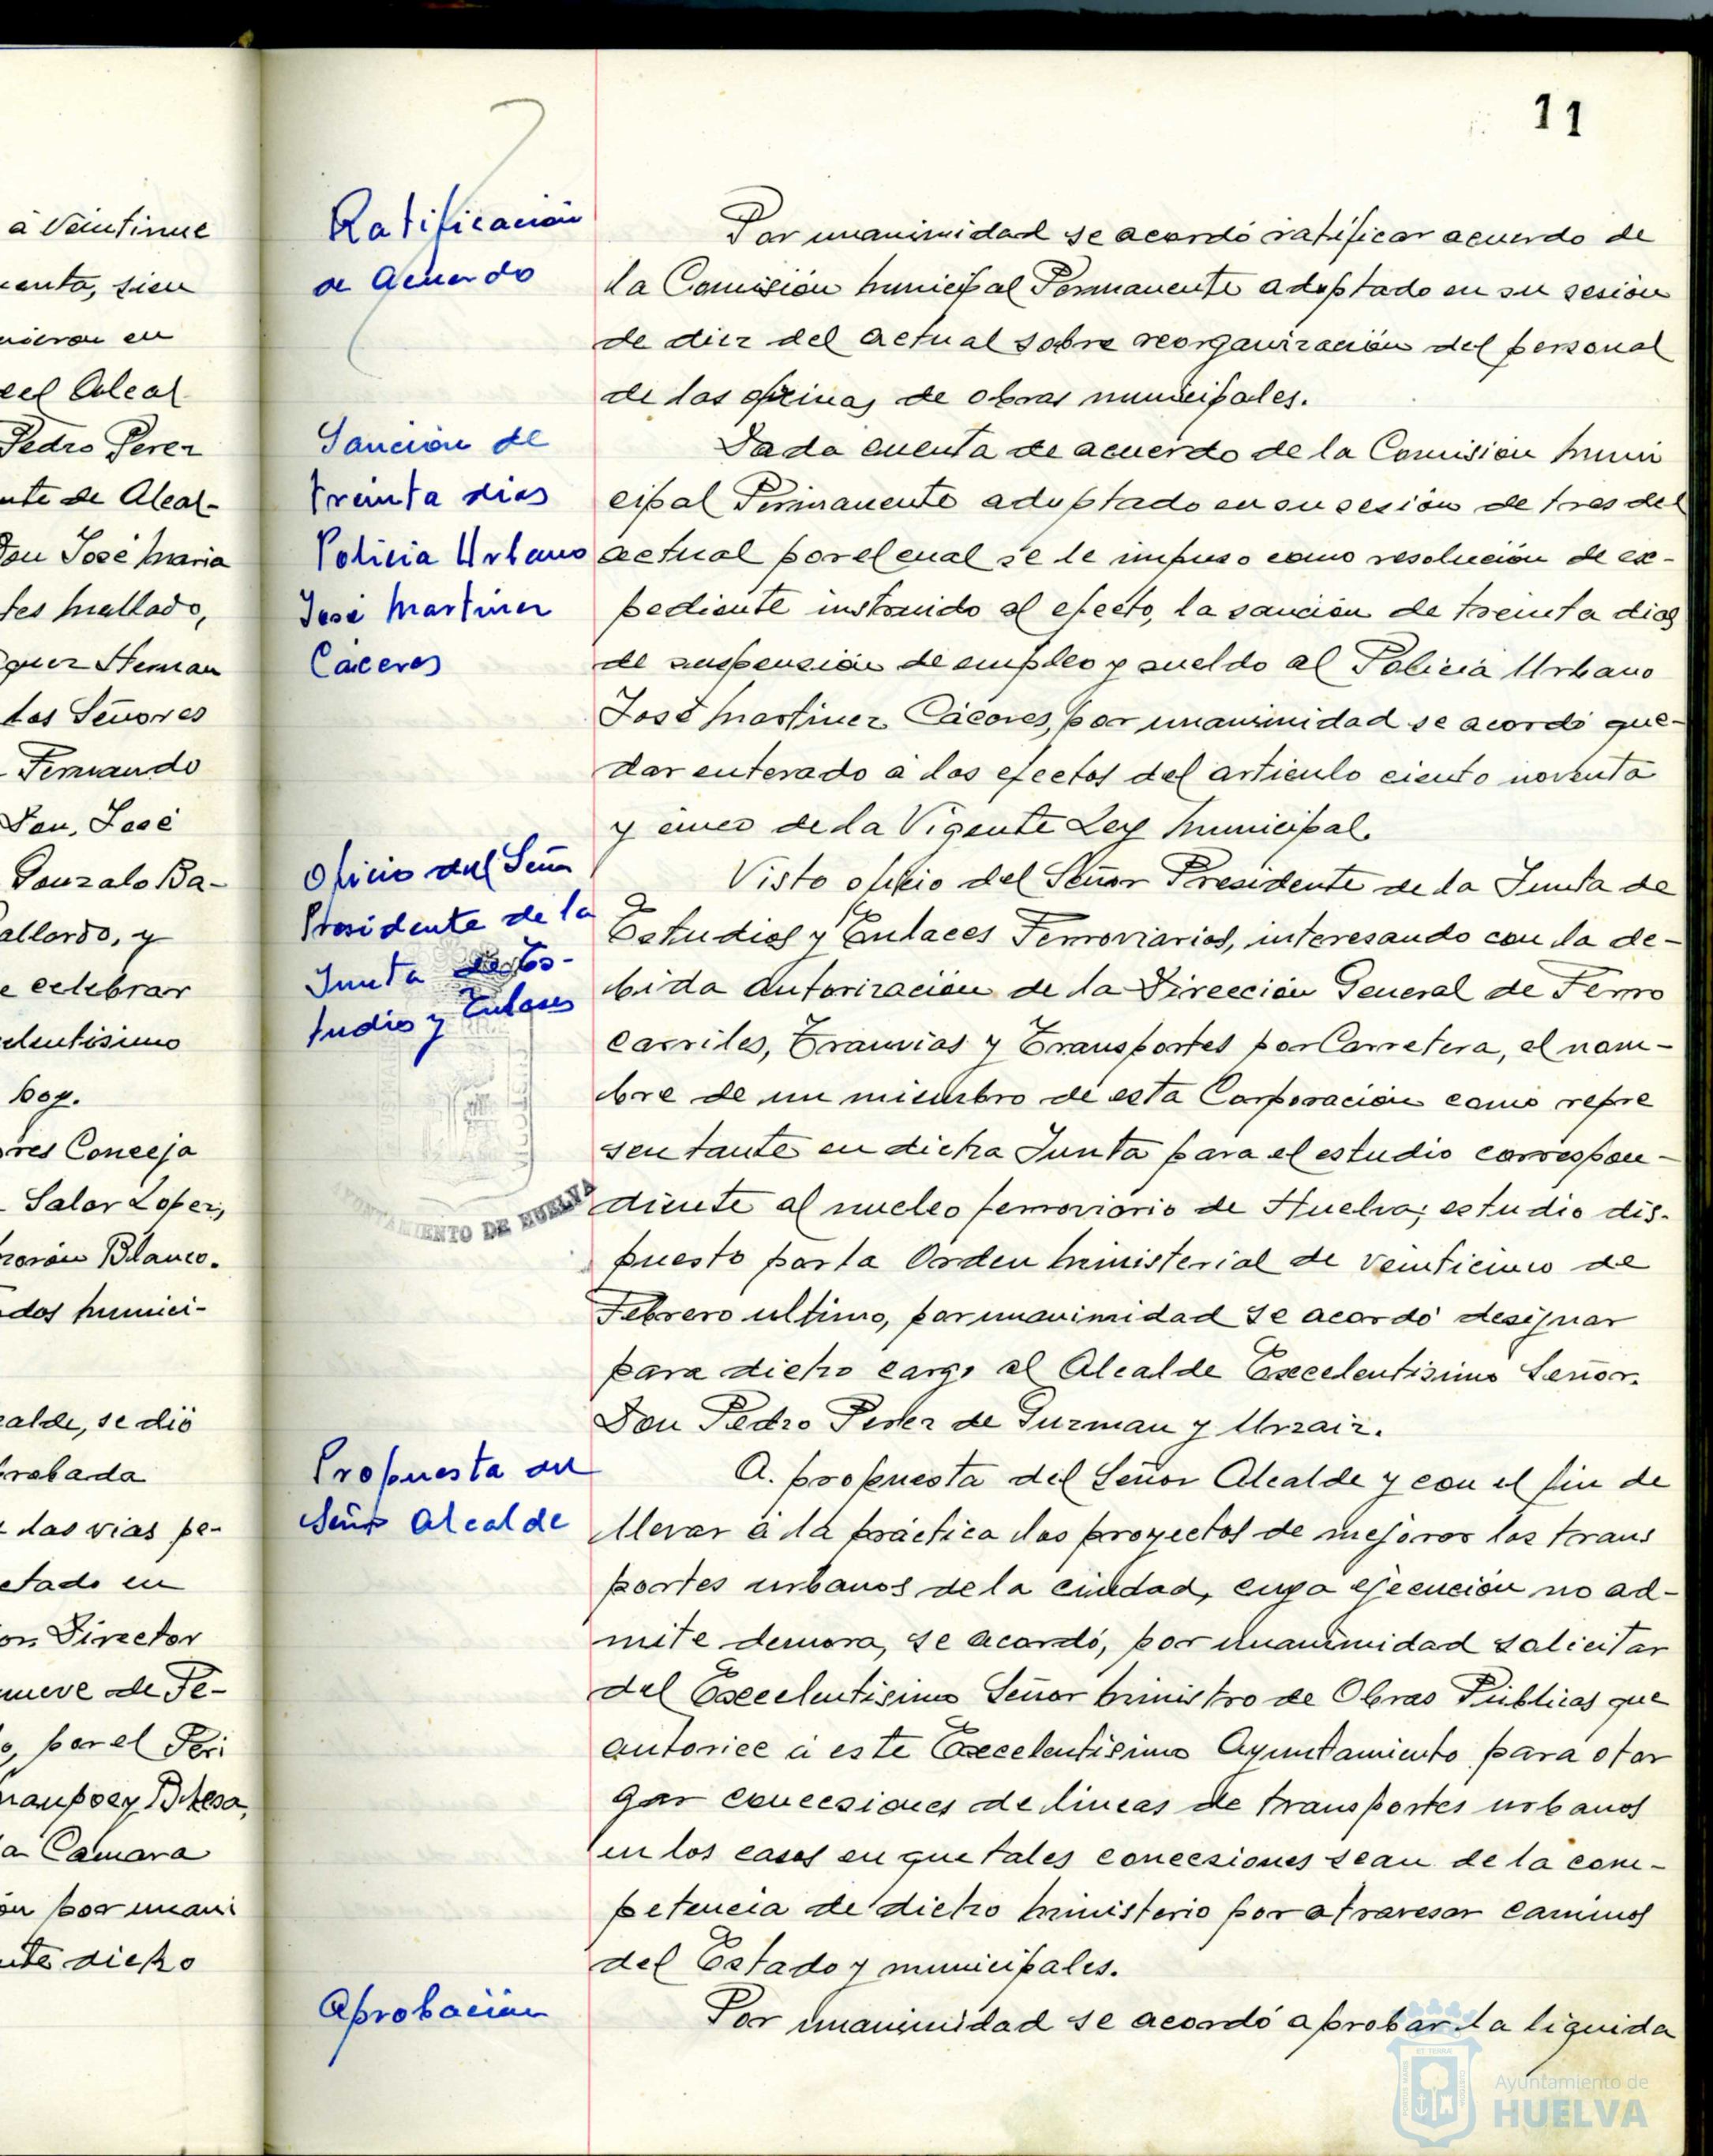 à Veintinue
enta, sien
nieron en
el Alcal
Pedro Perez
nte de Alcal-
Don José Maria
tes Mallado,
quez Hernan
los Señores
Fernando
Don, José
Gonzalo Ba-
allardo, y
e celebrar
elentisimo
hoy.
ores Conceja
Salor Lopez,
Morón Blanco.
dos munici-
calde, se dió
probada
las vias pe-
etado en
or Director
nueve de Fe-
o, por el Peri
a Camara
ón por unani
nte dicho
11
Ratificación
de acuerdo
Sanción de
treinta dias
Policia Urbano
José Martinez
Cáceres
Oficio del Señor
Presidente de la
Junta de Es-
tudios y Enlaces
AYUNTAMIENTO DE HUELVA
Propuesta del
Señor Alcalde
Aprobación
Por unanimidad se acordó ratificar acuerdo de
la Comisión Municipal Permanente adoptado en su sesión
de diez del actual sobre reorganización del personal
de las oficinas de obras municipales.
Dada cuenta de acuerdo de la Comisión Muni
cipal Permanente adoptado en su sesión de tres del
actual por el cual se le impuso como resolución de ex-
pediente instruido al efecto, la sanción de treinta dias
de suspensión de empleo y sueldo al Policia Urbano
José Martinez Cáceres, por unanimidad se acordó que-
dar enterado a los efectos del articulo ciento noventa
y cinco de la Vigente Ley Municipal.
Visto oficio del Señor Presidente de la Junta de
Estudios y Enlaces Ferroviarios, interesando con la de-
bida autorización de la Dirección General de Ferro
carriles, Tranvias y Transportes por Carretera, el nom-
bre de un miembro de esta Corporación como repre
sentante en dicha Junta para el estudio correspon-
diente al nucleo ferroviario de Huelva; estudio dis-
puesto por la Orden Ministerial de veinticinco de
Febrero ultimo, por unanimidad se acordó designar
para dicho cargo al Alcalde Excelentisimo Señor.
Don Pedro Perez de Guzman y Urzaiz.
A. propuesta del Señor Alcalde y con el fin de
llevar á la práctica los proyectos de mejorar los trans
portes urbanos de la ciudad, cuya ejecución no ad-
mite demora, se acordó, por unanimidad solicitar
del Excelentisimo Señor Ministro de Obras Públicas que
autorice á este Excelentisimo Ayuntamiento para otor
gar concesiones de lineas de transportes urbanos
en los casos en que tales concesiones sean de la com-
petencia de dicho Ministerio por atravesar caminos
del Estado y municipales.
Por unanimidad se acordó aprobar la liquida
Ayuntamiento de
HUELVA